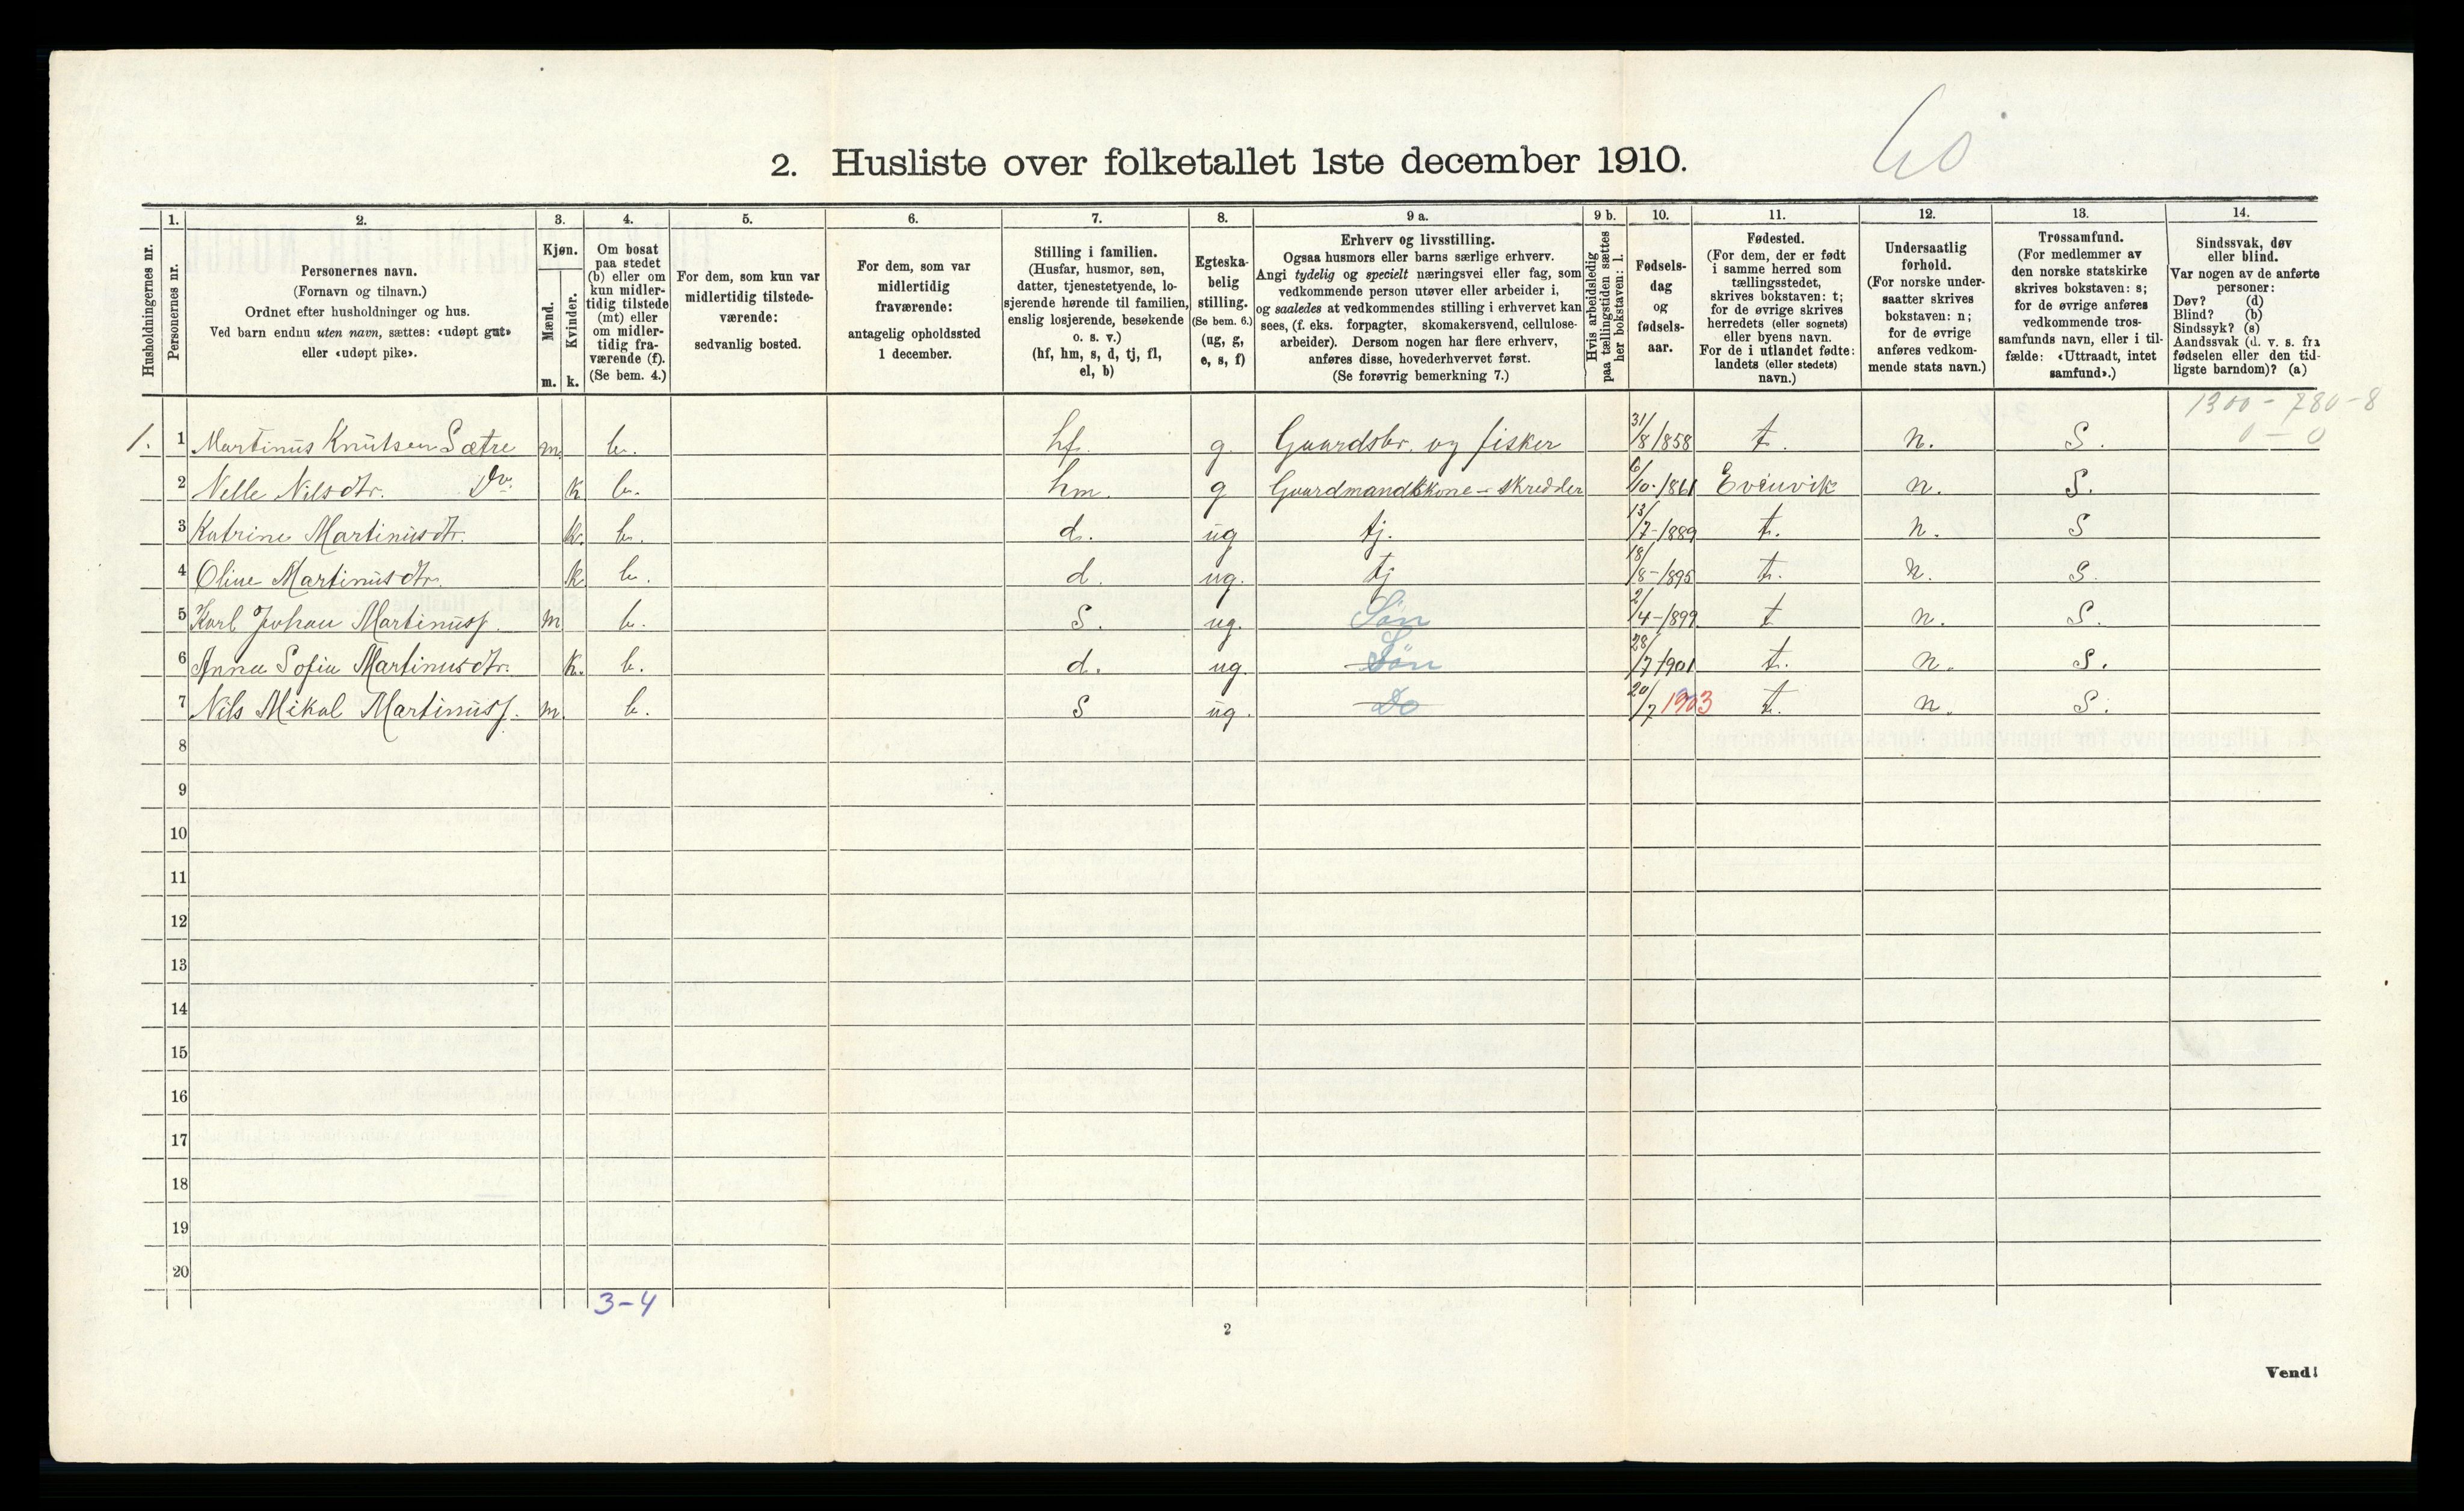 60
2. Husliste over folketallet 1ste december 1910.
Husholdningernes nr.
1. Personernes nr.
2. Personernes navn.
(Fornavn og tilnavn.)
Ordnet efter husholdninger og hus.
Ved barn endnu uten navn, sættes: «udøpt gut»
eller «udøpt pike».
3. Kjøn.
Mænd. m.
Kvinder. k.
4. Om bosat
paa stedet
(b) eller om
kun midler-
tidig tilstede
(mt) eller
om midler-
tidig fra-
værende (f).
(Se bem. 4.)
5. For dem, som kun var
midlertidig tilstede-
værende:
sedvanlig bosted.
6. For dem, som var
midlertidig
fraværende:
antagelig opholdssted
1 december.
7. Stilling i familien.
(Husfar, husmor, søn,
datter, tjenestetyende, lo-
sjerende hørende til familien,
enslig losjerende, besøkende
o. s. v.)
(hf, hm, s, d, tj, fl,
el, b)
8. Egteska-
belig
stilling.
(Se bem. 6.)
(ug, g,
e, s, f)
9 a. Erhverv og livsstilling.
Ogsaa husmors eller barns særlige erhverv.
Angi tydelig og specielt næringsvei eller fag, som
vedkommende person utøver eller arbeider i,
og saaledes at vedkommendes stilling i erhvervet kan
sees, (f. eks. forpagter, skomakersvend, cellulose-
arbeider). Dersom nogen har flere erhverv,
anføres disse, hovederhvervet først.
(Se forøvrig bemerkning 7.)
9 b. Hvis arbeidsledig
paa tællingstiden sættes
her bokstaven: l.
10. Fødsels-
dag
og
fødsels-
aar.
11. Fødested.
(For dem, der er født
i samme herred som
tællingsstedet,
skrives bokstaven: t;
for de øvrige skrives
herredets (eller sognets)
eller byens navn.
For de i utlandet fødte:
landets (eller stedets)
navn.)
12. Undersaatlig
forhold.
(For norske under-
saatter skrives
bokstaven: n;
for de øvrige
anføres vedkom-
mende stats navn.)
13. Trossamfund.
(For medlemmer av
den norske statskirke
skrives bokstaven: s;
for de øvrige anføres
vedkommende tros-
samfunds navn, eller i til-
fælde: «Uttraadt, intet
samfund».)
14. Sindssvak, døv
eller blind.
Var nogen av de anførte
personer:
Døv? (d)
Blind? (b)
Sindssyk? (s)
Aandssvak (d. v. s. fra
fødselen eller den tid-
ligste barndom)? (a)
1300 - 780 - 8
0 - 0
1. 1 Martinus Knutsen Sætre m. b. hf. g. Gaardsbr. og fisker 31/8 1858 t. n. S.
2 Nelle Nilsdtr. Do. k b. hm. g Gaardmandskone - skredder 6/10-1861 Evinvik n. S.
3 Katrine Martinusdtr. k. b. d. ug tj. 13/7-1889 t. n. S
4 Oline Martinusdtr. k. b. d. ug. tj 18/8-1895 t. n. S.
5 Karl Johan Martinuss. m b. S. ug. Søn 2/4-1899 t n. S.
6 Anna Sofia Martinusdtr. k. b. d. ug. Søn 28/7 1901 t. n. S.
7 Nils Mikal Martinuss. m. b. S ug. Do 20/7 1903 t. n. S.
8
9
10
11
12
13
14
15
16
17
18
19
20
3-4
2
Vend!